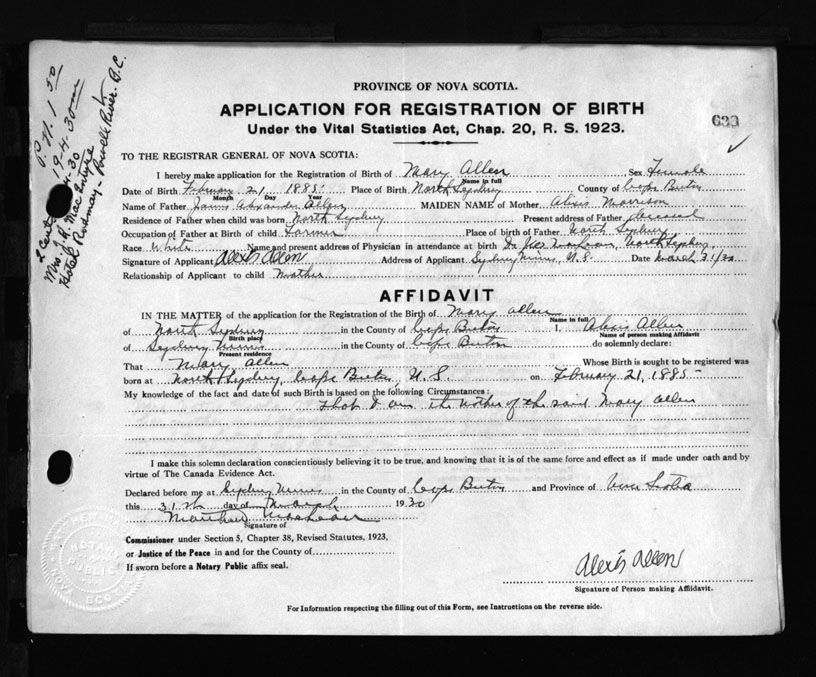 PROVINCE OF NOVA SCOTIA.
APPLICATION FOR REGISTRATION OF BIRTH
Under the Vital Statistics Act, Chap. 20, R. S. 1923.
623
TO THE REGISTRAR GENERAL OF NOVA SCOTIA:
I hereby make application for the Registration of Birth of Mary Allen Sex Female
Name in full
Date of Birth February 21 1885 Place of Birth North Sydney County of Cape Breton
Month Day Year
Name of Father James Alexander Allen MAIDEN NAME of Mother Alexis Morrison
Residence of Father when child was born North Sydney Present address of Father deceased
Occupation of Father at Birth of child Farmer Place of birth of Father North Sydney
Race White Name and present address of Physician in attendance at birth Dr. North Sydney
Signature of Applicant Alexis Allen Address of Applicant Sydney Mines, N.S. Date March 31/30
Relationship of Applicant to child Mother
AFFIDAVIT
IN THE MATTER of the application for the Registration of the Birth of Mary Allen
Name in full
of North Sydney in the County of Cape Breton I, Alexis Allen
Birth place Name of person making Affidavit
of Sydney Mines in the County of Cape Breton do solemnly declare:
Present residence
That Mary Allen Whose Birth is sought to be registered was
born at North Sydney, Cape Breton, N.S. on February 21, 1885
My knowledge of the fact and date of such Birth is based on the following Circumstances:
that I am the mother of the said Mary Allen
I make this solemn declaration conscientiously believing it to be true, and knowing that it is of the same force and effect as if made under oath and by
virtue of The Canada Evidence Act.
Declared before me at Sydney Mines in the County of Cape Breton and Province of Nova Scotia
this 31st day of March 1930
Matthew
Signature of
Commissioner under Section 5, Chapter 38, Revised Statutes, 1923,
or Justice of the Peace in and for the County of
If sworn before a Notary Public affix seal.
NOTARY PUBLIC
NOVA SCOTIA
Alexis Allen
Signature of Person making Affidavit.
For Information respecting the filling out of this Form, see Instructions on the reverse side.
19-4-30
Mrs. J. A. MacIntyre
Hotel Rodmay - Powell River. B.C.